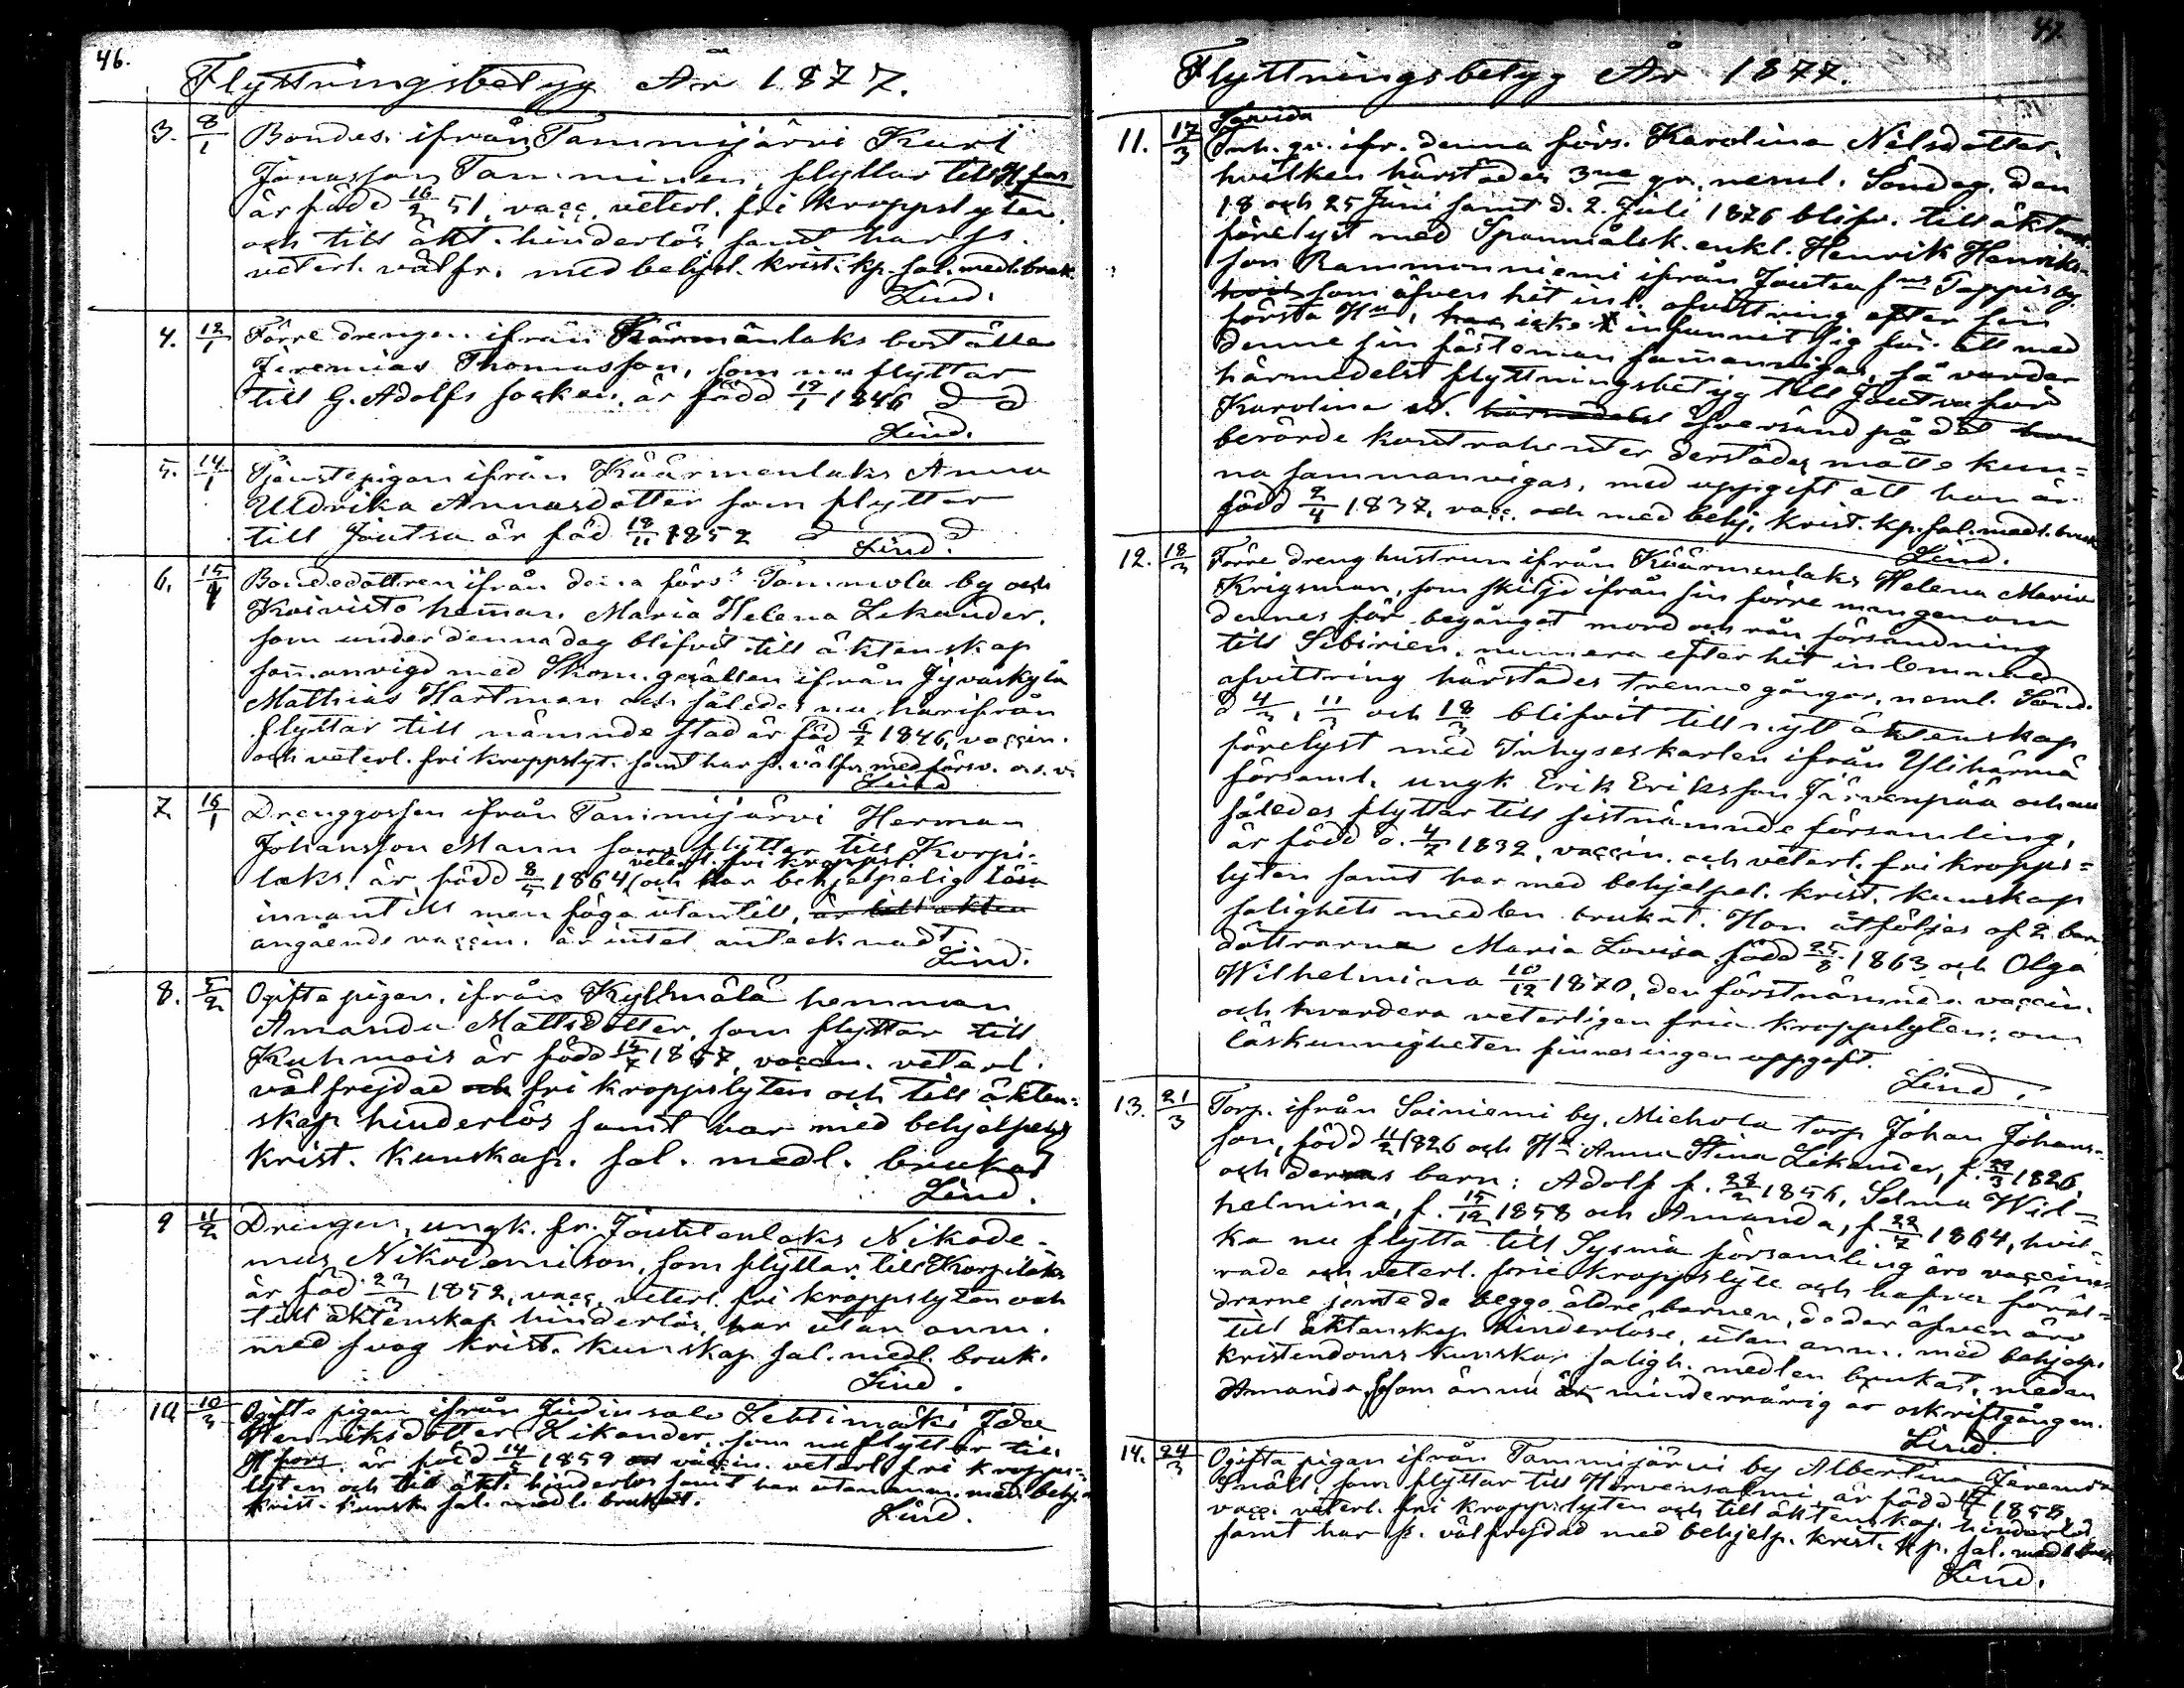 46.
Flyttningsbetyg År 1877.
3. 8/1 Bondes. ifrån Tammijärvi Karl
Jonasson Tamminen, flyttar till Hfors
är född 16/2 51, vacc. veterl. fri kroppslyten.
och till äkt. hinderlös samt har ss.
veterl. välfr. med behjel. krist. kp. sal. medl. bruk.
Lind.
4. 12/1 Förre drengen ifrån Käärmänlaks boställe
Jeremias Thomasson, som nu flyttar
till G. Adolfs socken, är född 19/1 1846 d d
Lind.
5. 14/1 Tjenstepigan ifrån Käärmenlaks Anna
Uldrika Annasdotter som flyttar
till Joutsa är föd 18/11 1852 d d
Lind.
6. 15/1 Bondedottren ifrån denna förs. Tammola by och
Koivisto hemman Maria Helena Lekander,
som under denna dag blifvit till äktenskap
samanvigd med Skom. gesällen ifrån Jyväskylä
Mathias Hartman och således nu härifrån
flyttar till nämnde stad är föd 6/2 1846, vaccin.
och veterl. fri kroppslyt. samt har ss. välfr. med försv. a.s.v.
Lind
7. 16/1 Drenggossen ifrån Tammijärvi Herman
Johansson Mann som flyttar till Korpi-
veterl. fri kroppsl.
laks, är född 8/5 1864, och har behjelpelig läsa
innantill men föga utantill, är betr akten
angående vaccin. är intet antecknadt
Lind.
8. 5/2 Ogifta pigan, ifrån Kyllmälä hemman
Amanda Mattsdotter, som flyttar till
Kuhmois är född 15/7 1857, vaccin. veterl.
välfrejdad och fri kroppslyten och till äkten-
skap hinderlös samt har med behjelpelig
krist. kunskap. sal. medl. brukat
Lind.
9 11/2 Drengen, ungk. fr. Joutenlaks Nikode-
mus Nikodemison, som flyttar till Korpilaks
är föd 23/3 1852, vacc. veterl. fri kroppslyten och
till äktenskap hinderlös, har utan anm.
med svag krist. kunskap sal. medl. bruk.
Lind.
10. 10/3 Ogifta pigan ifrån Judinsalo Lehtimäki Ida
Henriksdotter Likander, som nu flyttar till
Hfors, är född 14/5 1859 och vaccin. veterl. fri kropps-
lyten och till äkt. hinderlös samt har utan anm. med behj.
krist. kunsk. sal. medl. brukat.
Lind.
47.
Flyttningsbetyg År 1877.
11. 17/3 Inh. qv. ifr. denna förs. Karolina Nilsdotter,
hvilken härstädes 3ne gr. neml. Söndag. den
18 och 25 Juni samt d. 2. Juli 1876 blifv. till äktensk.
förelyst med Spannmålsk. enkl. Henrik Henriks-
son Rammonniemi ifrån Joutsa sns Tappis by
hvil som äfven hit inl. afvittring efter sin
första Hu, har icke infunnit sig för att med
denne sin fästeman sammanvigas, så varder
härmedelst flyttningsbetyg till Joutsa för
Karolina N. härmedelst öfversänd på det hon
berörde kontrahenter derstädes måtte kun-
na sammanvigas, med uppgift att hon är
född 2/4 1837, vacc. och med behj. krist. kp. sal. medl. bruk
Lind.
12. 18/3 Förre dreng hustrun ifrån Käärmenlaks Helena Maria
Krigsman, som skiljd ifrån sin förre man genom
dennes för begånget mord och rån försändning
till Sibirien, numera efter hit inlemnad
afvittring härstädes trenne gångor, neml. Sönd.
d 4/3, 11/3 och 18/3 blifvit till nytt äktenskap
förelyst med Inhyseskarlen ifrån Ylihärmä
församl. ungk Erik Eriksson Järvenpää och nu
således flyttar till sistnämnde församling,
är född d. 4/2 1832, vaccin. och veterl. fri kropps-
lyten samt har med behjelpel. krist. kunskap
salighets medlen brukat. Hon åtföljes af 2 barn
döttrarna Maria Lovisa född 25/8 1863 och Olga
Wilhelmina 10/12 1870, den förstnämnda vaccin.
och hvardera veterligen fria kroppslyten; om
läskunnigheten finnes ingen uppgift.
Lind.
13. 21/3 Torp. ifrån Soiniemi by, Michola torp Johan Johans-
son, född 11/2 1826 och Hu Anna Stina Likander, f. 29/3 1826
och deras barn: Adolf f. 28/2 1856, Selma Wil-
helmina, f. 15/12 1858 och Amanda, f. 22/7 1864, hvil-
ka nu flytta till Sysmä församling äro vaccine-
rade och veterl. frie kroppslyte och hafva föräl-
drarne jemte de beggo äldre barnen, de der äfven äro
till äktenskap hinderlöse, utan anm. med behjelp.
kristendoms kunskap saligh. medlen brukat, medan
Amanda, som ännu är minderårig är oskriftgången.
Lind.
14. 24/3 Ogifta pigan ifrån Tammijärvi by Albertina Jeremi
Snäll, som flyttar till Hirvensalmi är född 1858,
vacc. veterl. fri kroppslyten och till äktenskap hinderlös
samt har ss. välfrejdad med behjelp. krist. kp. sal. medl. bruk
Lind.